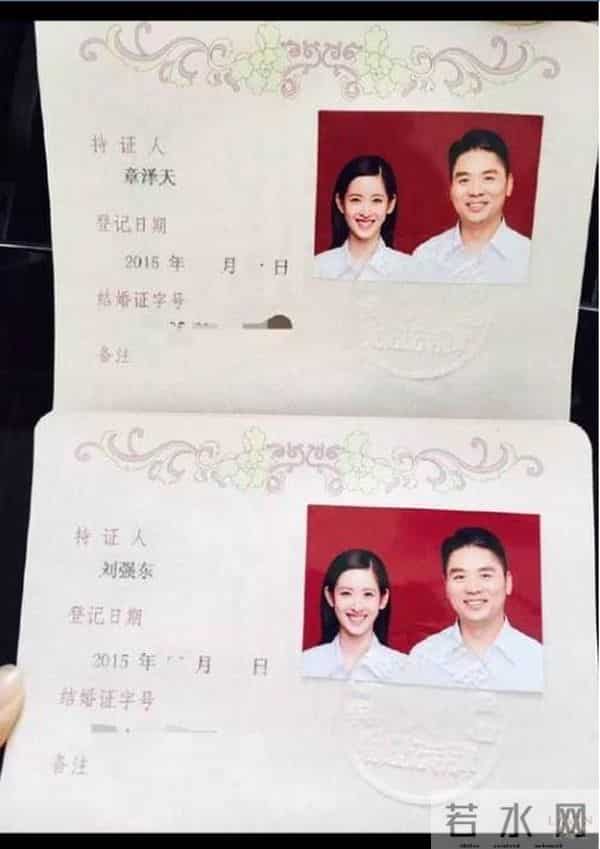 持证人
章泽天
登记日期
2015 年 月 日
结婚证字号
备注
持证人
刘强东
登记日期
2015 年 月 日
结婚证字号
备注
若水网